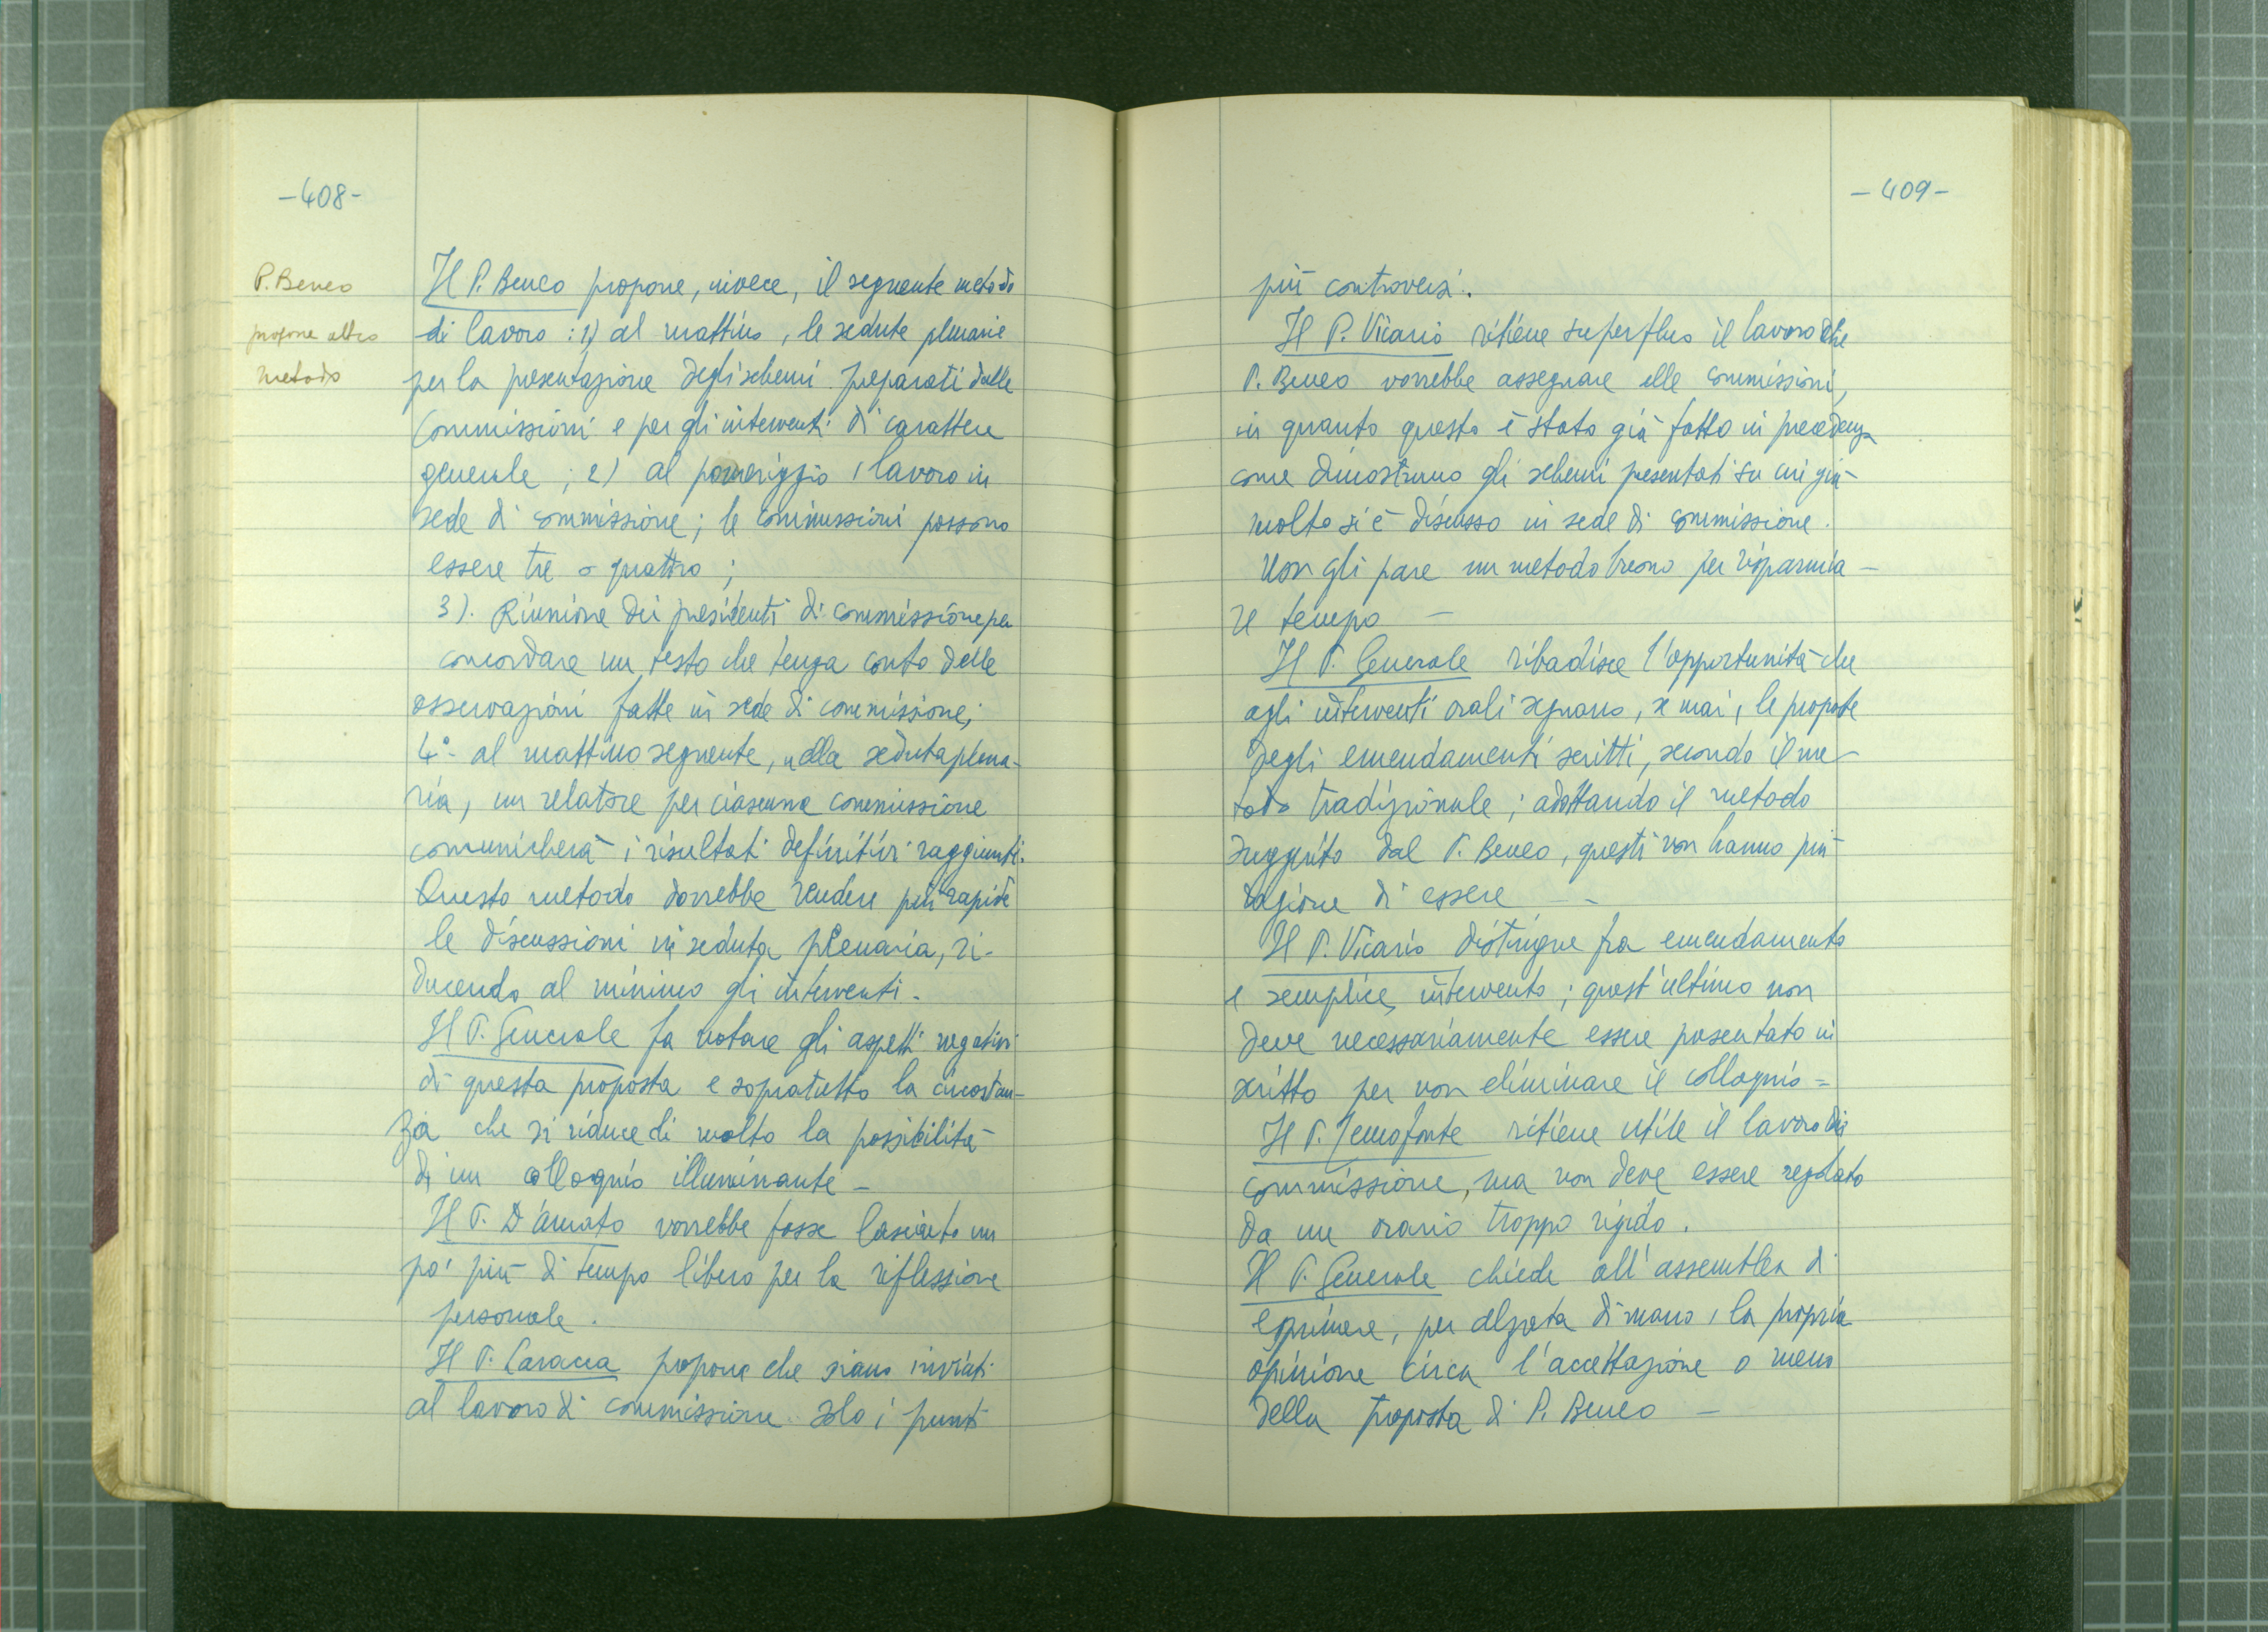 -408-
P. Beneo
propone altro
metodo
Il P. Beneo propone, invece, il seguente metodo
di lavoro: 1) al mattino, le sedute plenarie
per la presentazione degli schemi preparati dalle
Commissioni e per gli interventi di carattere
generale; 2) al pomeriggio, lavoro in
sede di commissione; le commissioni possono
essere tre o quattro;
3). Riunione dei presidenti di commissione per
concordare un testo che tenga conto delle
osservazioni fatte in sede di commissione;
4°- al mattino seguente, nella seduta plena-
ria, un relatore per ciascuna commissione
comunicherà i risultati definitivi raggiunti.
Questo metodo dovrebbe rendere più rapide
le discussioni in seduta plenaria, ri-
ducendo al minimo gli interventi.
Il P. Generale fa notare gli aspetti negativi
di questa proposta e sopratutto la circostan-
za che si riduce di molto la possibilità
di un colloquio illuminante -
Il P. D'Amato vorrebbe fosse lasciato un
po' più di tempo libero per la riflessione
personale.
Il P. Caracca propone che siano inviati
al lavoro di commissione solo i punti
-409-
più controversi.
Il P. Vicario ritiene superfluo il lavoro che
P. Beneo vorrebbe assegnare alle commissioni,
in quanto questo è stato già fatto in precedenza
come dimostrano gli schemi presentati su cui già
molto si è discusso in sede di commissione.
Non gli pare un metodo buono per risparmia-
re tempo -
Il P. Generale ribadisce l'opportunità che
agli interventi orali seguano, se mai, le proposte
degli emendamenti scritti, secondo il me-
todo tradizionale; adottando il metodo
suggerito dal P. Beneo, questi non hanno più
ragione di essere --
Il P. Vicario distingue fra emendamento
e semplice intervento; quest'ultimo non
deve necessariamente essere presentato in
scritto per non eliminare il colloquio =
Il P. Senofonte ritiene utile il lavoro di
commissione, ma non deve essere regolato
da un orario troppo rigido.
Il P. Generale chiede all'assemblea di
esprimere, per alzata di mano, la propria
opinione circa l'accettazione o meno
della proposta di P. Beneo -